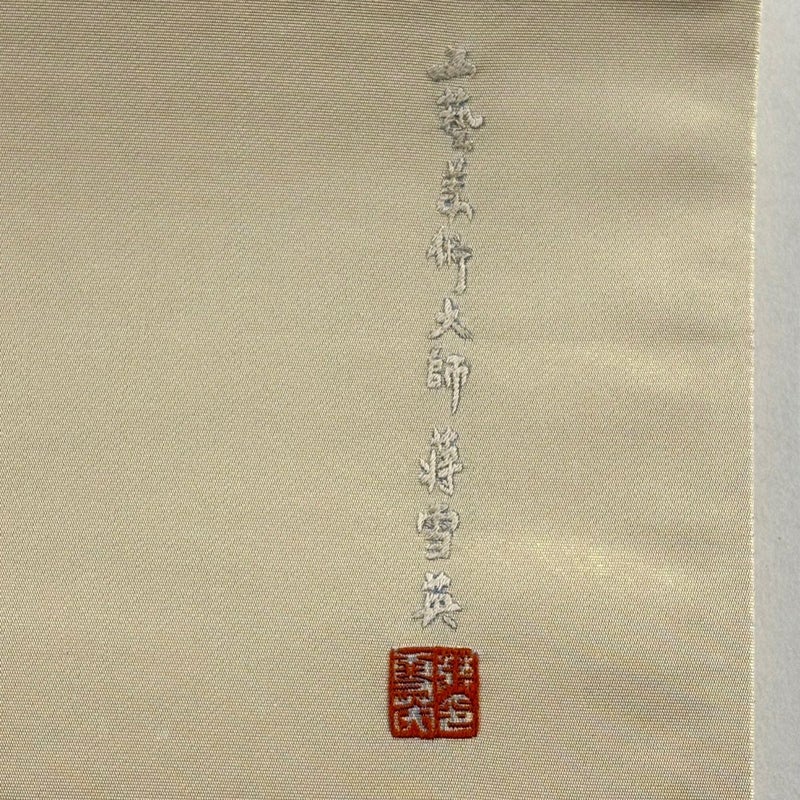 工藝美術大師蔣雪英